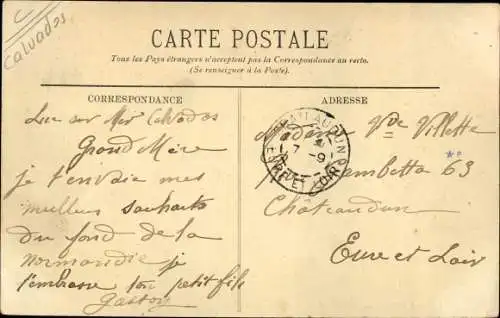 Calvados
CARTE POSTALE
Tous les Pays étrangers n'acceptent pas la Correspondance au recto.
(Se renseigner à la Poste).
CORRESPONDANCE
ADRESSE
Luc sur Mer Calvados
Grand Mère
je t'envoie mes
meilleurs souhaits
du fond de la
normandie je
t'embrasse ton petit fils
Gaston
CHATEAUDUN
7 -9
EURE ET LOIR
Madame Vve Villette
Gambetta 63
Chateaudun
Eure et Loir